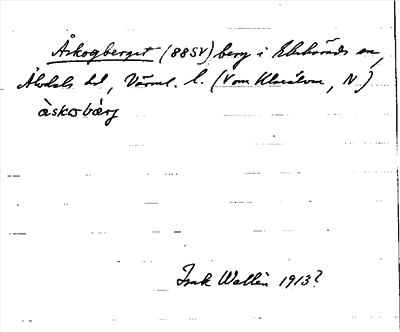 Åskogberget (88SV) berg i Ekshärads sn,
Älvdals hd, Värml. l. (V om Klarälven, N)
àskobǽrj
Isak Wallin 1913?